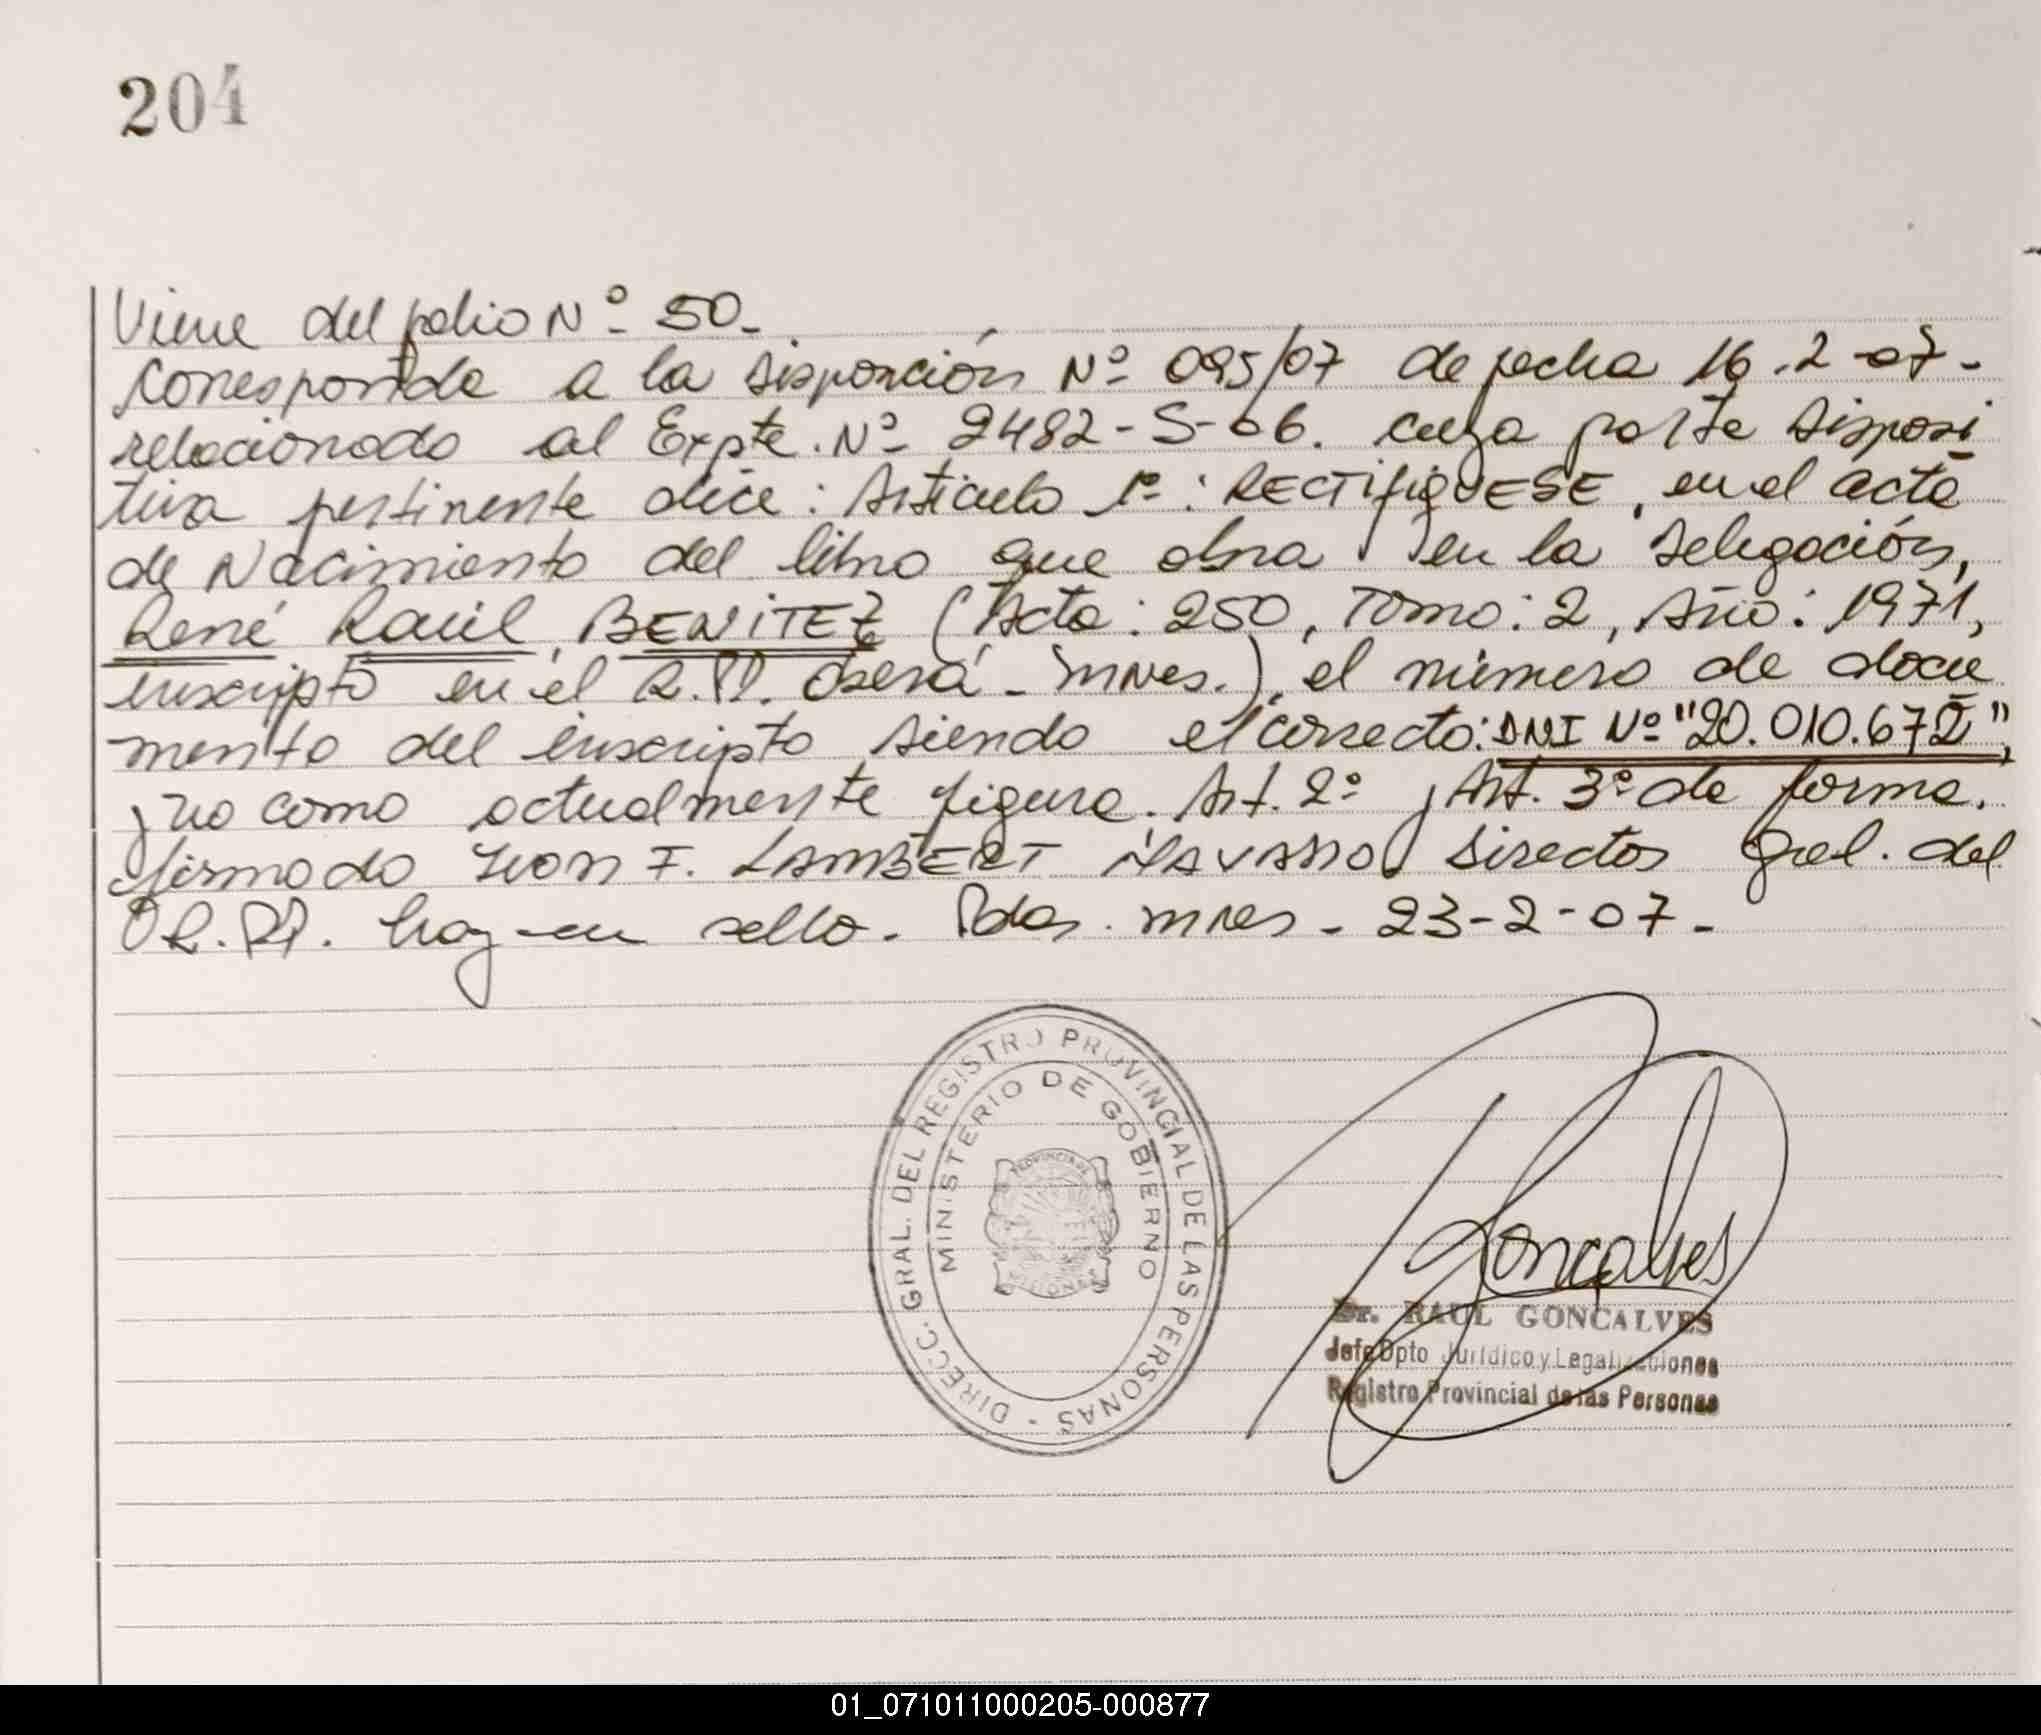 204
Viene del folio Nº 50.-
Corresponde a la Disposición Nº 095/07 de fecha 16.2-07-
relacionado al Expte. Nº 2482-S-06. cuya parte Disposi
tiva pertinente dice: Articulo 1º: RECTIFIQUESE, en el acta
de Nacimiento del libro que obra en la Delegación,
René Raúl BENITEZ (Acta: 250, Tomo: 2, Año: 1971,
inscripto en el R.P. Oberá - Mnes.), el número de docu
mento del inscripto siendo el correcto: DNI Nº "20.010.672",
y no como actualmente figura. Art. 2º y Art. 3º de forma.
firmado Ivon F. LAMBERT NAVARRO Director Gral. del
R.P. hay un sello. Pdas. Mnes - 23-2-07-
DIRECC. GRAL. DEL REGISTRO PROVINCIAL DE LAS PERSONAS
MINISTERIO DE GOBIERNO
PROVINCIA DE
MISIONES
Goncalves
Dr. RAUL GONCALVES
Jefe Dpto Jurídico y Legalizaciones
Registro Provincial de las Personas
01_071011000205-000877